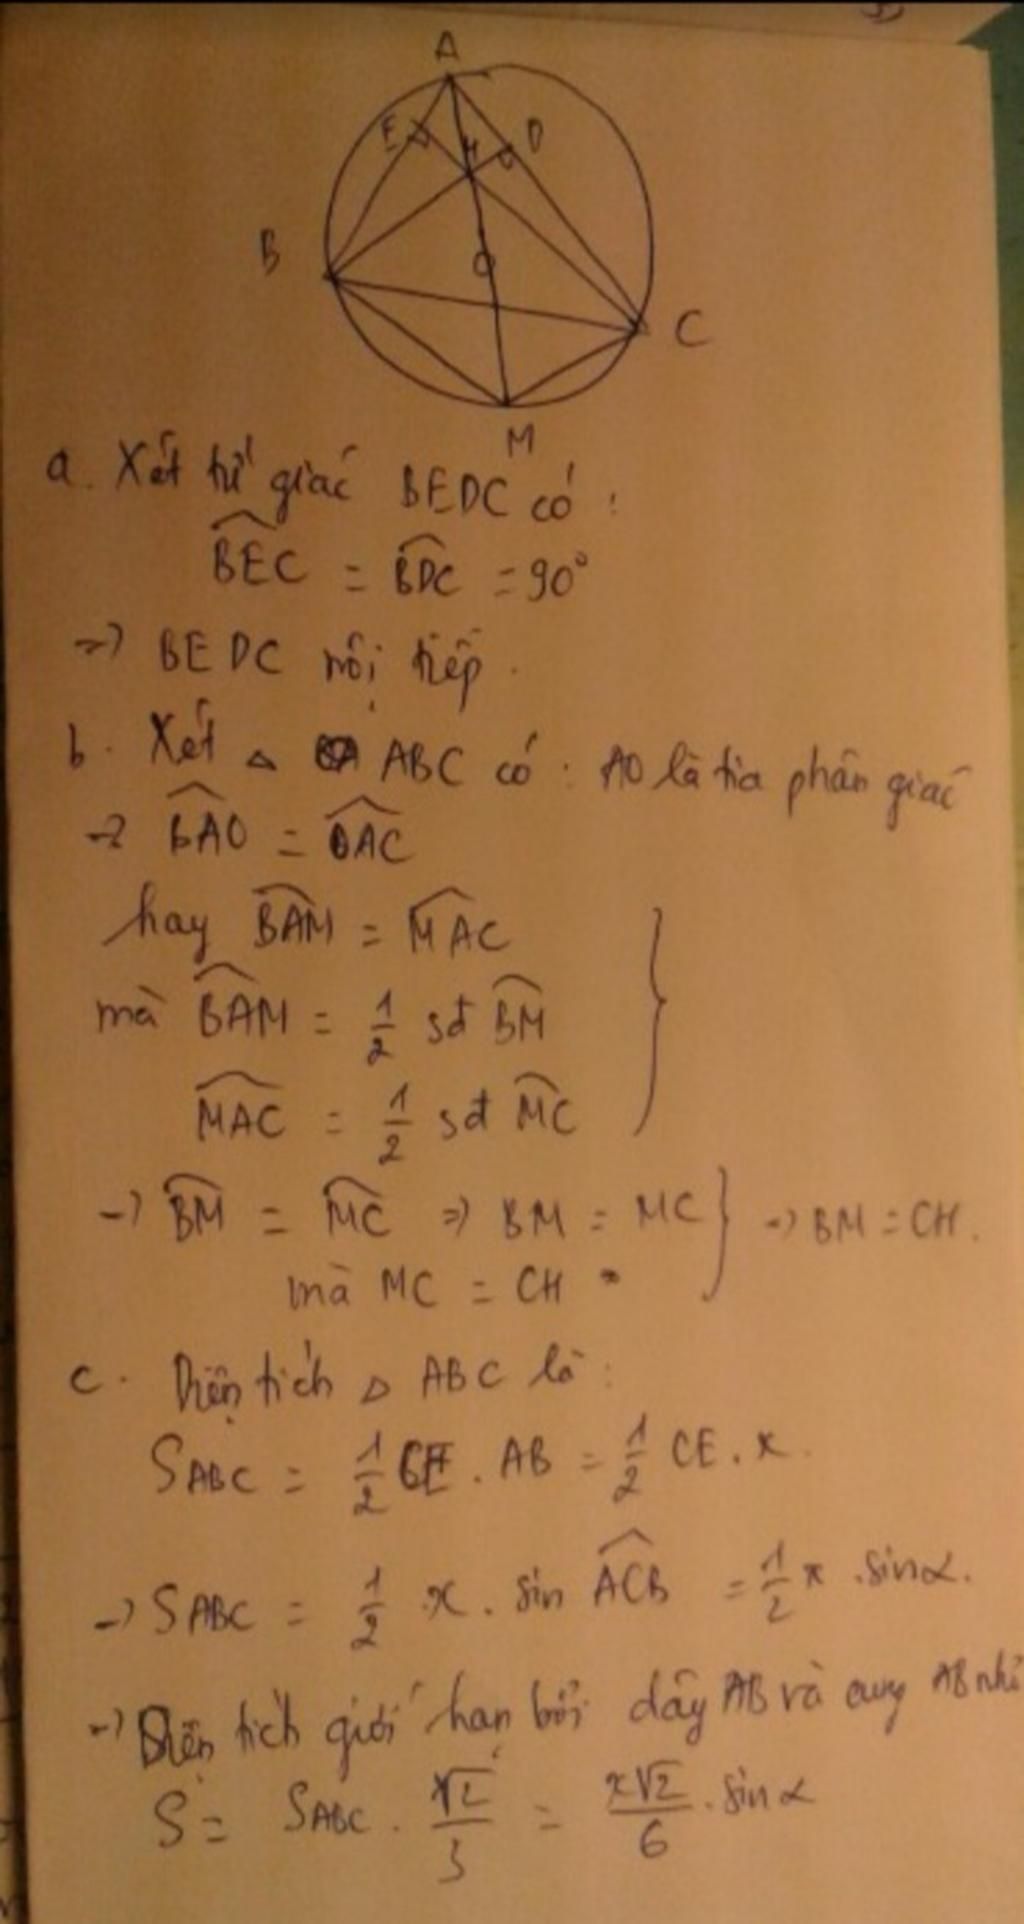 A
E
H
D
B
O
C
M
a. Xét tứ giác BEDC có:
BEC = BDC = 90°
=> BEDC nội tiếp.
b. Xét △ ABC có: AO là tia phân giác
-> BAO = OAC
hay BAM = MAC
mà BAM = 1/2 sđ BM
MAC = 1/2 sđ MC
-> BM = MC => BM = MC } -> BM = CH.
mà MC = CH
c. Diện tích △ ABC là:
S ABC = 1/2 CE . AB = 1/2 CE . x.
-> S ABC = 1/2 x . sin ACB = 1/2 x . sin α.
-> Diện tích giới hạn bởi dây AB và cung AB
S = S ABC . √2/3 = x√2/6 . sin α